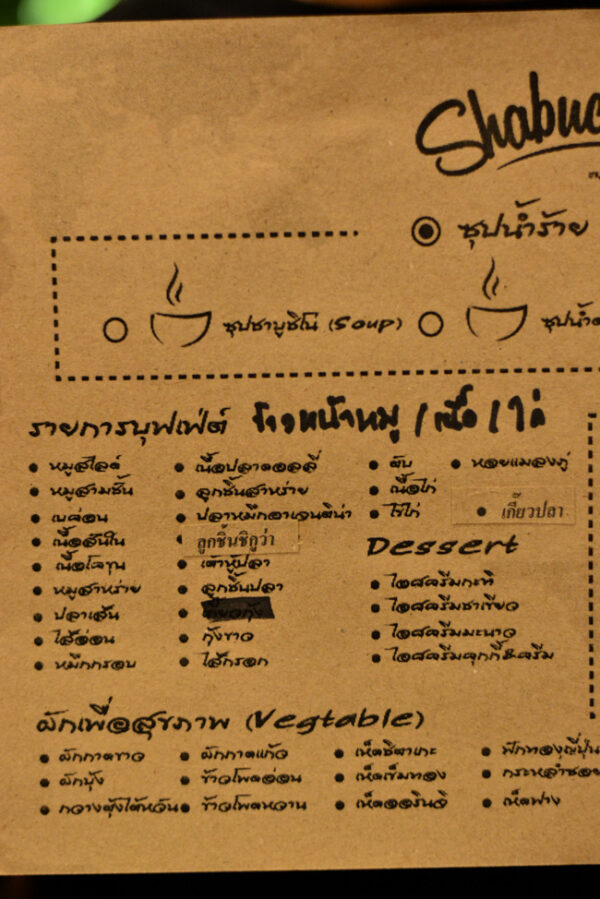 Shabu
ซุปน้ำร้าย
ซุปชาบูชิโน่ (Soup)
ซุปน้ำ
รายการบุฟเฟ่ต์ ข้าวหน้าหมู / เนื้อ / ไก่
• หมูสไลด์ • เนื้อปลาดอลลี่ • ตับ • หอยแมลงภู่
• หมูสามชั้น • ลูกชิ้นสาหร่าย • เนื้อไก่
• เบค่อน • ปลาหมึกอาเจนติน่า • ไข่ไก่ • เกี๊ยวปลา
• เนื้อสันใน • ลูกชิ้นชิกูว่า
• เนื้อโคขุน • เต้าหู้ปลา
Dessert
• หมูสาหร่าย • ลูกชิ้นปลา • ไอศครีมกะทิ
• ปลาเส้น • เกี๊ยวกุ้ง • ไอศครีมชาเขียว
• ไส้อ่อน • กุ้งขาว • ไอศครีมมะนาว
• หมึกกรอบ • ไส้กรอก • ไอศครีมคุกกี้&ครีม
ผักเพื่อสุขภาพ (Vegtable)
• ผักกาดขาว • ผักกาดแก้ว • เห็ดชิตาเกะ • ฟักทองญี่ปุ่น
• ผักบุ้ง • ข้าวโพดอ่อน • เห็ดเข็มทอง • กระหล่ำซอย
• กวางตุ้งไต้หวัน • ข้าวโพดหวาน • เห็ดออรินจิ • เห็ดฟาง